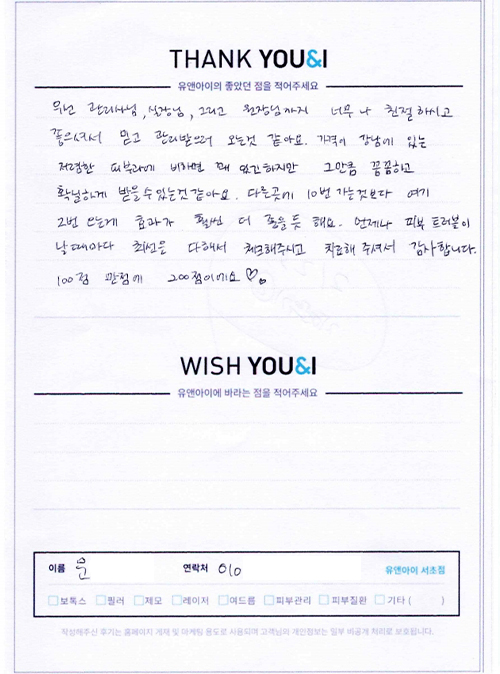 THANK YOU&I
유앤아이의 좋았던 점을 적어주세요
우선 관리사님, 실장님, 그리고 원장님까지 너무나 친절하시고
좋으셔서 믿고 관리받으러 오는것 같아요. 가격이 강남에 있는
저렴한 피부과에 비하면 꽤 있긴하지만 그만큼 꼼꼼하고
확실하게 받을수있는것같아요. 다른곳에 10번 가는것보다 여기
2번 오는게 효과가 훨씬 더 좋을듯 해요. 언제나 피부 트러블이
날때마다 최선을 다해서 체크해주시고 치료해 주셔서 감사합니다.
100점 만점에 200점이에요♡
WISH YOU&I
유앤아이에 바라는 점을 적어주세요
이름 윤 연락처 010 유앤아이 서초점
보톡스 필러 제모 레이저 여드름 피부관리 피부질환 기타 ( )
작성해주신 후기는 홈페이지 게재 및 마케팅 용도로 사용되며 고객님의 개인정보는 일부 비공개 처리로 보호됩니다.